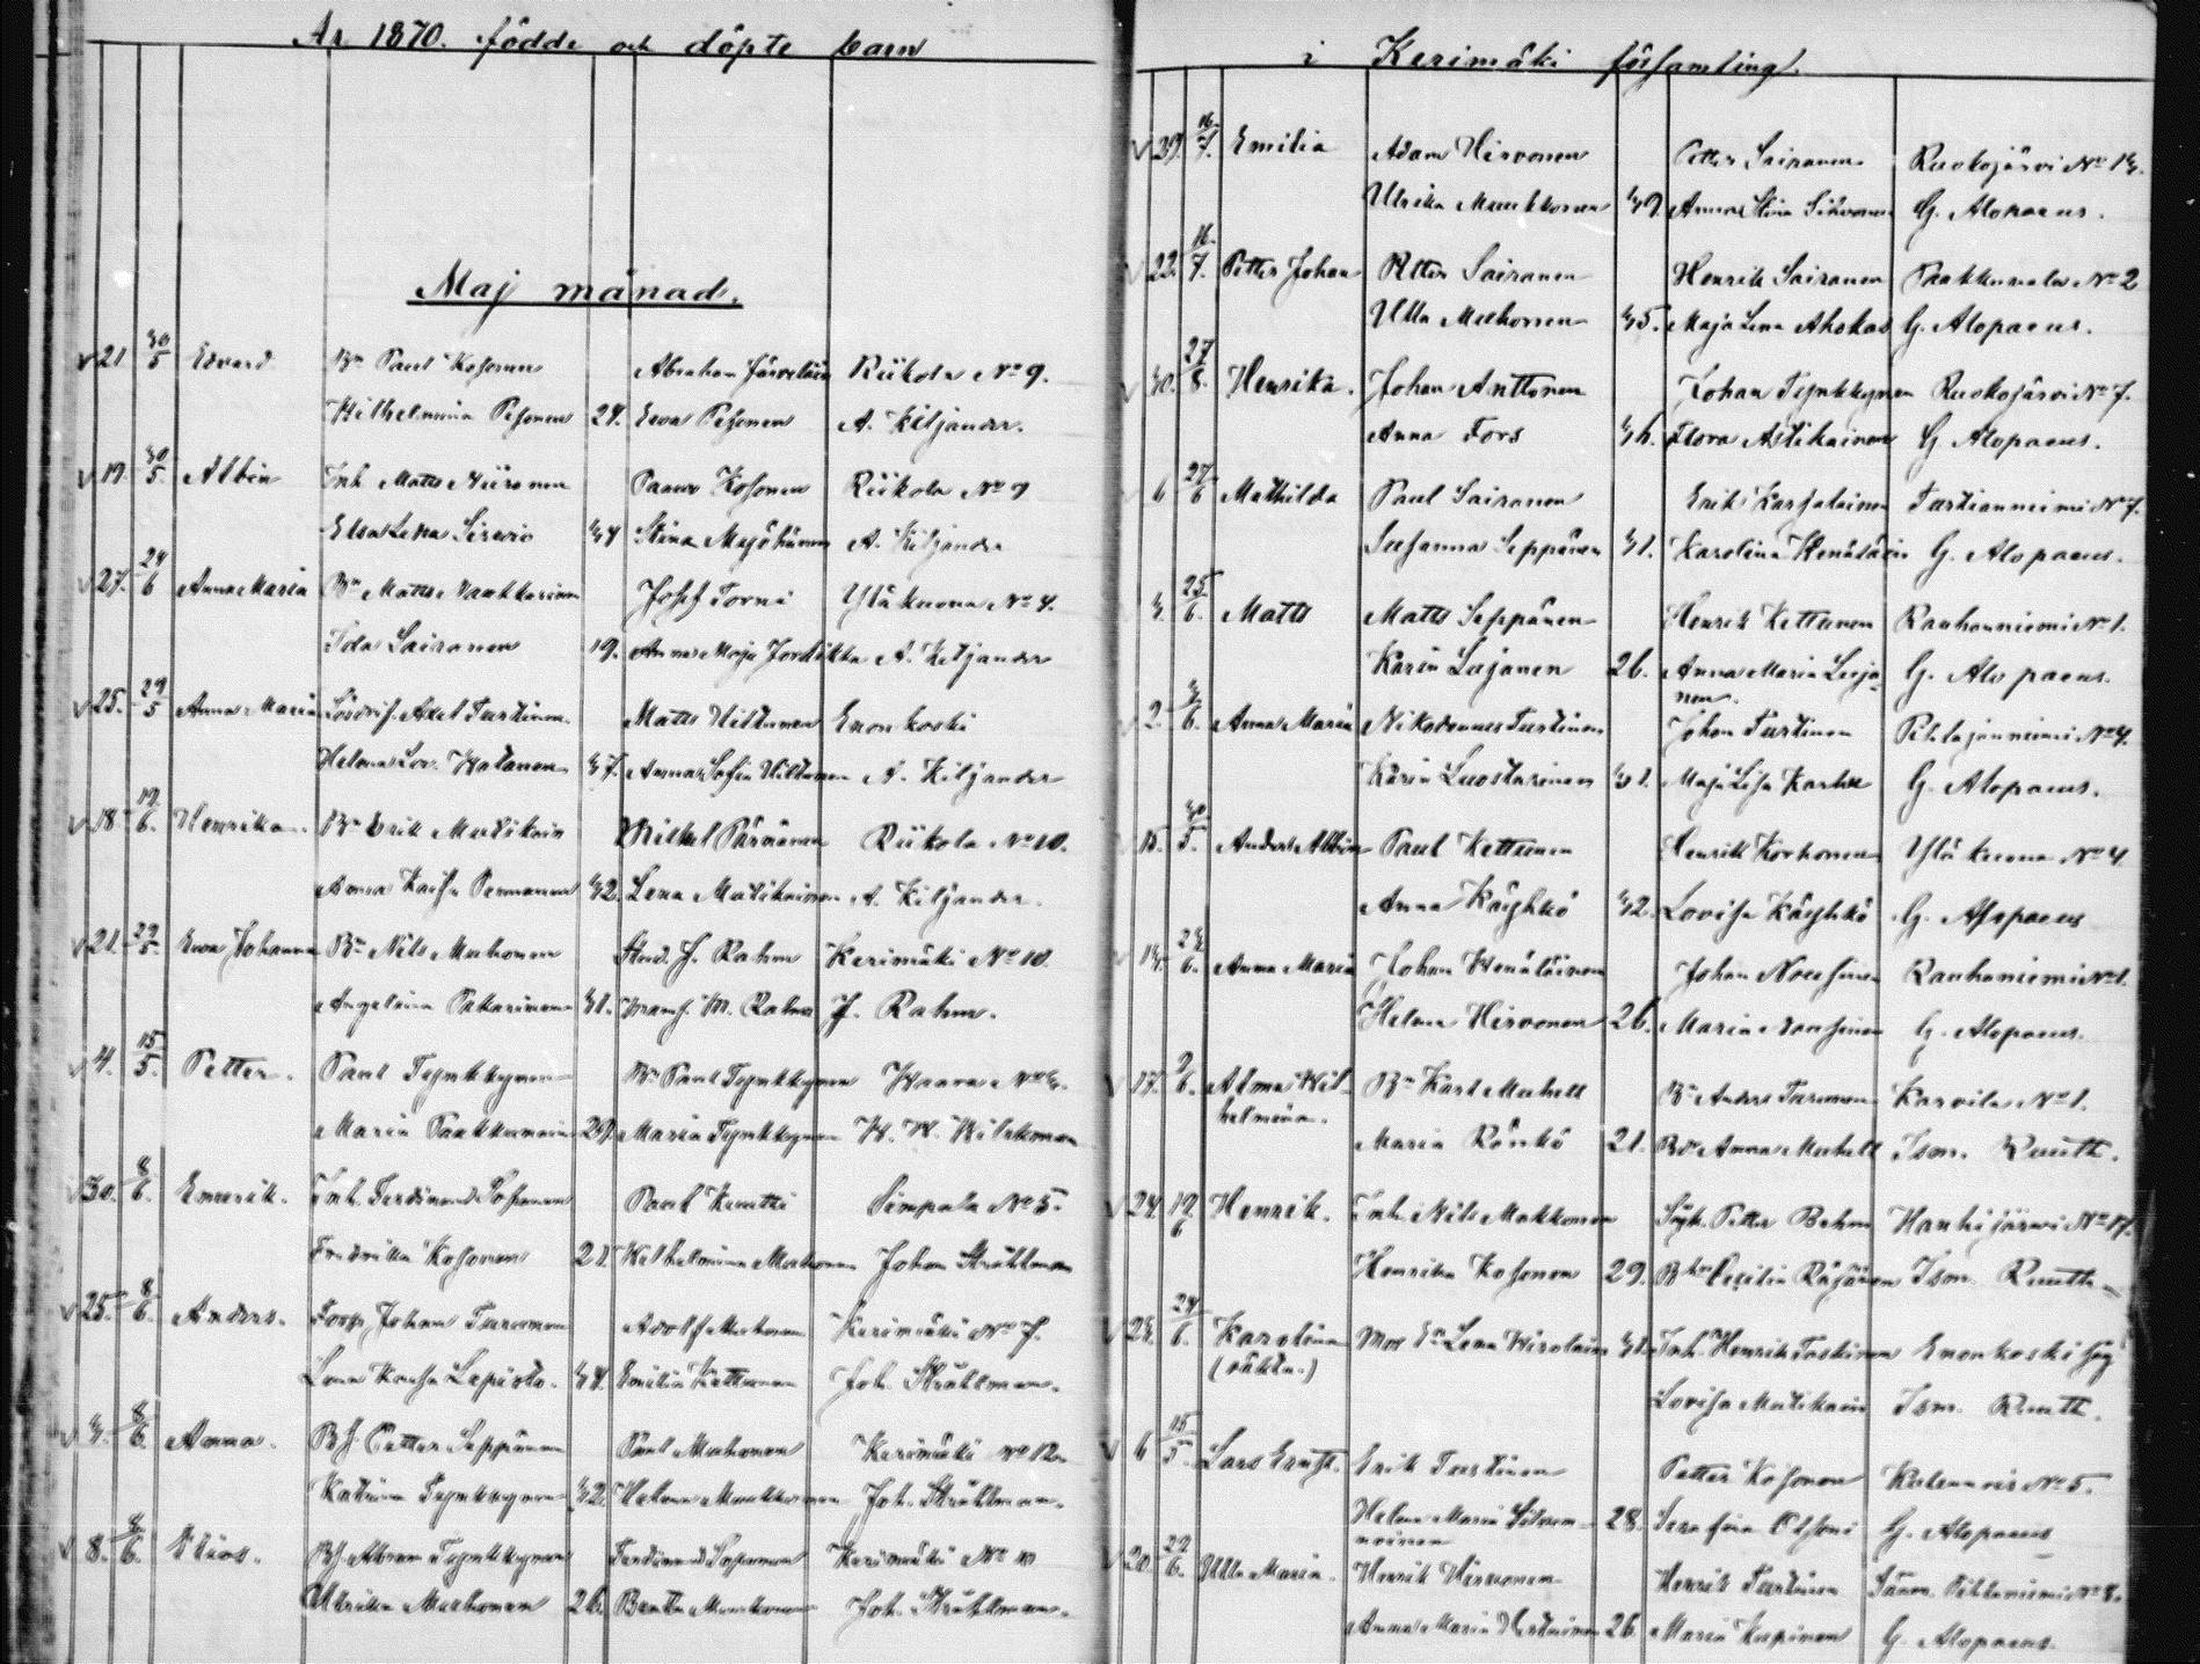 År 1870. födde och döpte barn
Maj månad.
21 30/5 Edvard Bn Paul Kosonen Abraham Järveläin Riikola No 9.
Wilhelmina Pesonen 24. Ewa Pesonen A. Kiljander.
19. 30/5. Albin Inh Matts Niiranen Paavo Kosonen Riikola No 9
Elsa Lena 34 Stina A. Kiljander
27. 24/6 Anna Maria Bn Matts Josef Torni Yläkuona No 4.
Ida Sairanen 19. Anna Maja A. Kiljander
25. 29/5 Anna Maria Axel Turtinen Matts Hiltunen Enonkoski
Helena Lov. Halonen 37. Anna Sofia Hiltunen A. Kiljander
18 19/6. Henrika. Bn Erik Mutikain Mikkel Pärnänen Riikola No 10.
Anna Kaisa Permanen 32. Lena Mutikainen A. Kiljander.
21. 29/5. Ewa Johanna Bn Nils Muhonen Stud. J. Rahm Kerimäki No 10.
Angelina Pakarinen 31. Mams. M. Rahm J. Rahm.
4. 15/5. Petter. Paul Tynkkynen Bn Paul Tynkkynen Haara No
Maria Paakkunain 29. Maria Tynkkynen W. W. Wilskman
30. 8/6. Emerik. Inh. Ferdinand Sopanen Paul Kuutti Simpala No 5.
Fredrika Kosonen 21 Wilhelmina Muhonen Johan Stråhlman
25. 8/6. Anders. Torp. Johan Turunen Adolf Muhonen Kerimäki No 7.
Lena Kaisa Lapisto. 34. Emilia Kettunen Joh. Stråhlman.
3. 8/6. Anna. Bs. Petter Seppänen Paul Muhonen Kerimäki No 12.
Katrina Tynkkynen 32. Helena Muukkonen Joh. Stråhlman.
8. 8/6. Elias. Bs. Abram Tynkkynen Ferdinand Sopanen Kerimäki No 10
Ulrika Muhonen 26. Beata Muukkonen Joh. Stråhlman.
i Kerimäki församling.
29 16/7. Emilia Adam Hirvonen Petter Sairanen Ruokojärvi No 13.
Ulrika Muukkonen 39. Anna Stina Sihvonen G. Alopaeus.
22. 16/7. Petter Johan Petter Sairanen Henrik Sairanen Paakkunala No 2
Ulla Muhonen 35. Maja Lena Ahokas G. Alopaeus.
30. 27/8. Henrika. Johan Anttonen Johan Tynkkynen Ruokojärvi No 7.
Anna Fors 36. Flora Astikainen G. Alopaeus.
6 27/6 Mathilda Paul Sairanen Erik Karjalainen Turtianniemi No 7.
Susanna Seppänen 31. Karolina Wenäläin G. Alopaeus.
3. 25/6. Matts Matts Seppänen Henrik Kettunen Rauhanniemi No 1.
Karin Lujanen 26. Anna Maria Luja- G. Alopaeus.
nen.
2. 3/6. Anna Maria Nikodemus Turtinen Johan Turtinen Pihlajanniemi No 4.
Karin Luostarinen 31. Maja Lisa Karhu G. Alopaeus.
15. 30/5. Anders Albin Paul Kettunen Henrik Korhonen Yläkuona No 4
Anna Käyhkö 32. Lovisa Käyhkö G. Alopaeus
13. 23/6. Anna Maria Johan Wenäläinen Johan Nousinen Rauhaniemi No 1.
Helena Hirvonen 26. Maria Nousinen G. Alopaeus.
17. 9/6. Alma Wil- Bn Karl Muhell Bn Anders Turunen Karvila No 1.
helmina.
Maria Rönkö 21. Bdr Anna Muhell Ism. Ruuth.
24. 19/6 Henrik. Inh. Nils Makkonen Sytn. Petter Behm Hauhijärvi No 17.
Henrika Kosonen 29. Bhu Cecilia Räsänen Ism. Ruuth
23. 24/6. Karolina Mor Ea Lena Wirolain 31. Inh. Henrik Toskinen Enonkoski
(oäkta.)
Lovisa Mutikain Ism. Ruuth.
6 15/5. Lars Ernst. Erik Turtinen Petter Kosonen No 5.
Helena Maria 28. Serafina Olsoni G. Alopaeus
20. 29/6. Ulla Maria. Henrik Hirvonen Henrik Turtinen Pihlaniemi No 8.
Anna Maria 26. Maria Kupinen G. Alopaeus.